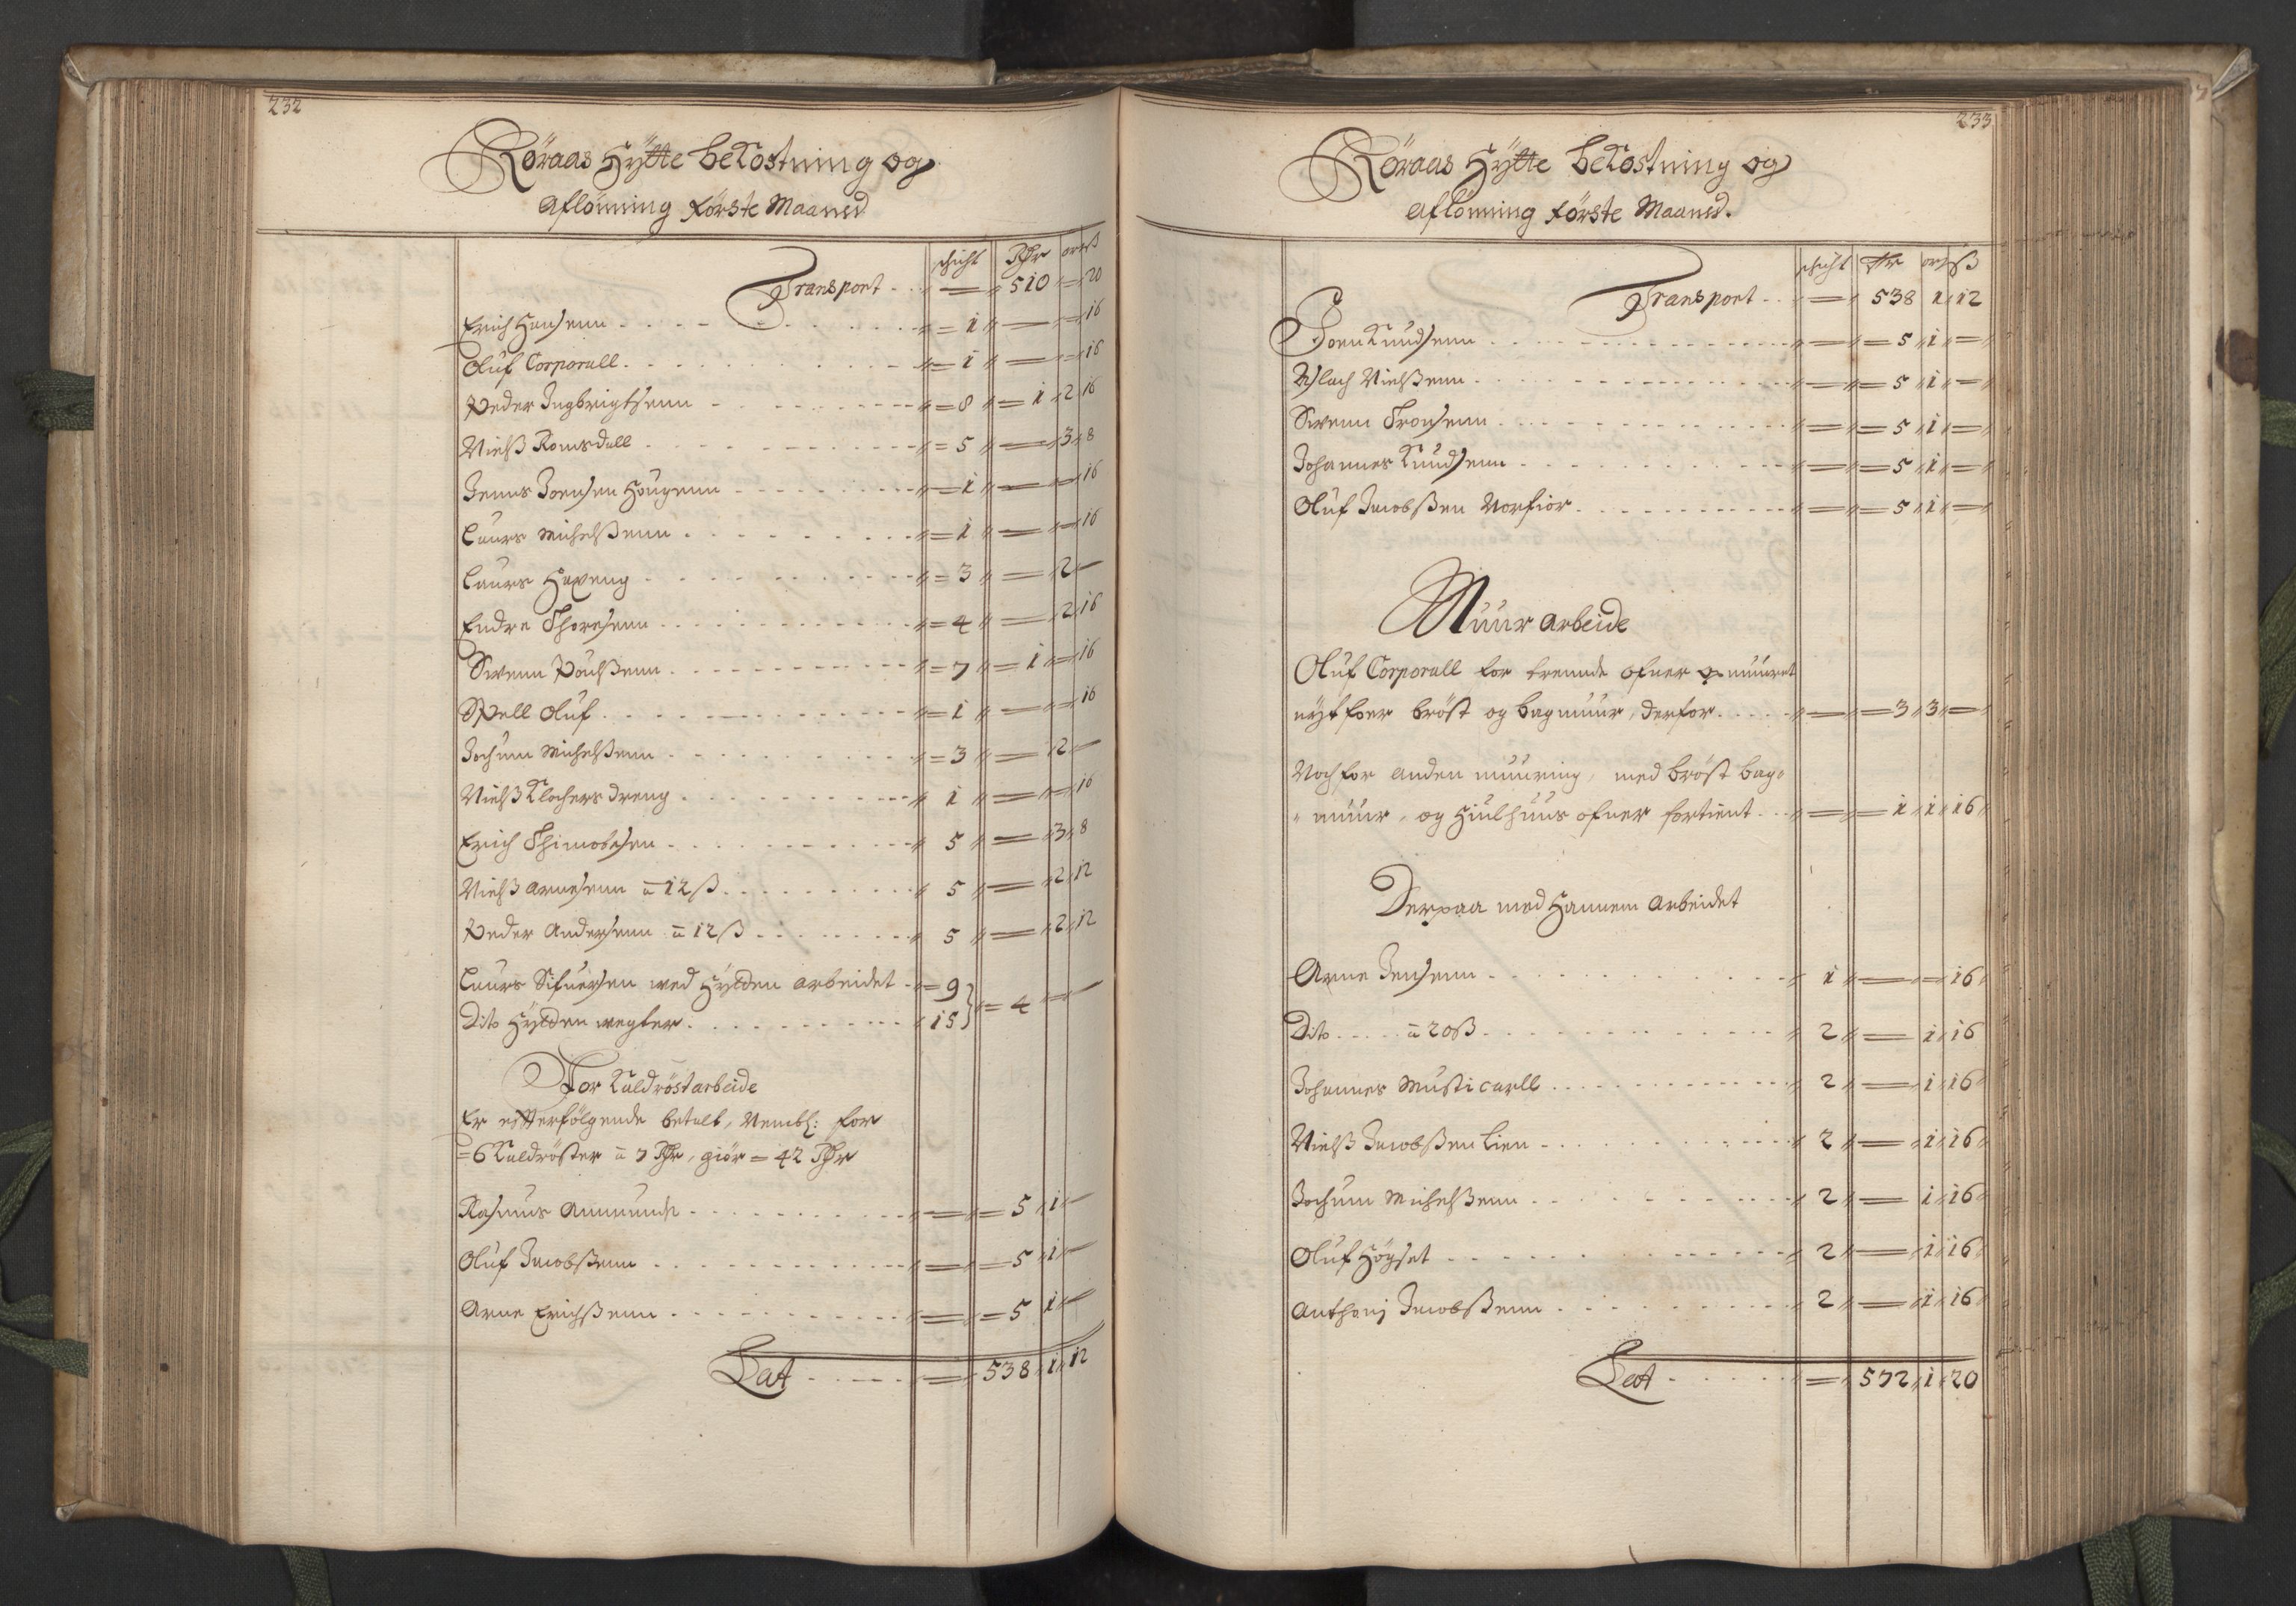 232
Röraas Hÿtte bekostning og
Aflönning förste Maaned
schicht Rhr ort ß
Transport . . — 510 = 20
Erich Hansenn . . . = 1 — = 16
Oluf Corporall . . . = 1 — = 16
Peder Ingbrigtsenn . . . = 8 = 1 2 16
Nielß Romsdall . . . = 5 — 3 8
Jenns Joensen Hougenn . . . = 1 — = 16
Laurs Michelßenn . . . = 1 — = 16
Laurs Haveng . . . = 3 — 2 —
Endre Thoresenn . . . = 4 — 2 16
Swenn Poulßenn . . . = 7 = 1 = 16
Spell Oluf . . . = 1 — = 16
Jochum Michelßenn . . . = 3 — 2 —
Nielß Klochers dreng . . . 1 — = 16
Erich Thimobesen . . . 5 — 3 8
Nielß Arnesenn a 12 ß . . . 5 — 2 12
Peder Andersenn a 12 ß . . . 5 — 2 12
Laurs Sifuersen wed Hÿtten arbeidet . = 9
Dito Hÿtten wegter . . . 15 } = 4 = —
For Kaldröstarbeide
Er effterfölgende betalt, Nembl: for
= 6 Kaldröster a 7 Rhr, giör = 42 Rhr
Rasmus Ammundt . . . — = 5 1 —
Oluf Jacobßenn . . . — = 5 1 —
Arne Erichßenn . . . — = 5 1 —
Lat . . . — 538 1 12
233
Röraas Hÿtte bekostning og
Aflönning förste Maaned.
schicht Rhr ort ß
Transport . . — 538 1 12
Joen Knudsenn . . . — = 5 1 =
Aslach Nielßenn . . . — = 5 1 =
Swenn Tronsenn . . . — = 5 1 =
Johannes Knudsenn . . . — = 5 1 =
Oluf Jacobßen Norfior . . . — = 5 1 =
Muur arbeide
Oluf Corporall for trennde ofner muuret
nÿt foer bröst og bagmuur, derfor . . . — = 3 3 =
Noch for anden muuring, med bröst bag=
= muur, og Hiulhuus ofner fortient . . — = 1 1 16
Derpaa med Hannem arbeidet
Arne Jensenn . . . 1 — = 16
Dito . . . a 20 ß . . . 2 — 1 16
Johannes Musticarll . . . 2 — 1 16
Nielß Jacobßen Lien . . . 2 — 1 16
Jochum Michelßenn . . . 2 — 1 16
Oluf Högset . . . 2 — 1 16
Anthonj Jacobßenn . . . 2 — 1 16
Lat . . . = 572 1 20